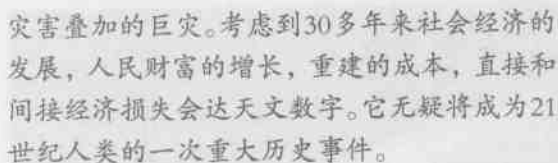 灾害叠加的巨灾。考虑到30多年来社会经济的
发展，人民财富的增长，重建的成本，直接和
间接经济损失会达天文数字。它无疑将成为21
世纪人类的一次重大历史事件。